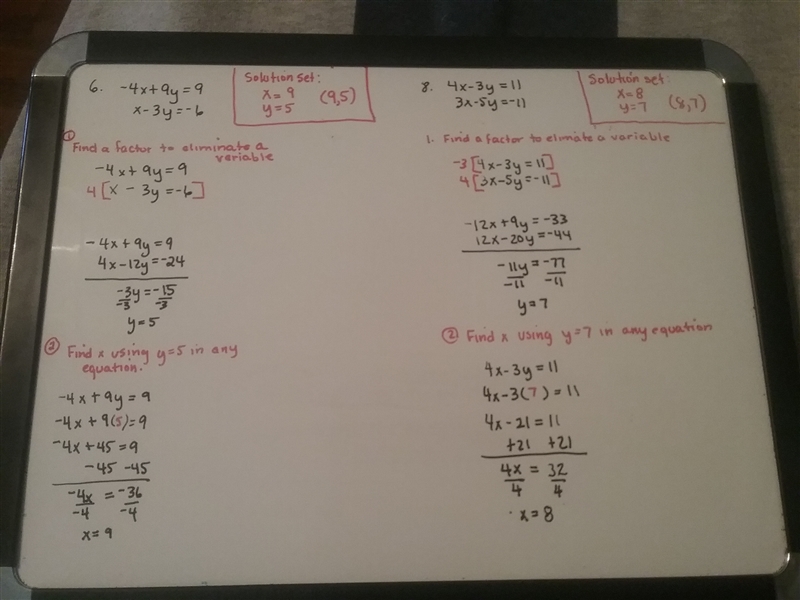 6. -4x+9y=9
x-3y=-6
Solution set:
x=9
y=5 (9,5)
① Find a factor to eliminate a
variable
-4x+9y=9
4[x - 3y=-6]
-4x+9y=9
4x-12y=-24
-3y=-15
-3 -3
y=5
② Find x using y=5 in any
equation.
-4x+9y=9
-4x+9(5)=9
-4x+45=9
-45 -45
-4x = -36
-4 -4
x=9
8. 4x-3y=11
3x-5y=-11
Solution set:
x=8
y=7 (8,7)
1. Find a factor to elimate a variable
-3[4x-3y=11]
4[3x-5y=-11]
-12x+9y=-33
12x-20y=-44
-11y=-77
-11 -11
y=7
② Find x using y=7 in any equation
4x-3y=11
4x-3(7)=11
4x-21=11
+21 +21
4x = 32
4 4
x=8